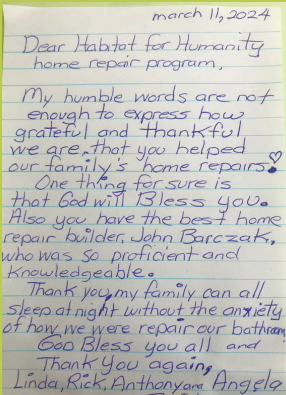 march 11, 2024
Dear Habitat for Humanity
home repair program,
My humble words are not
enough to express how
grateful and thankful
we are, that you helped
our family's home repairs!
One thing for sure is
that God will Bless you.
Also you have the best home
repair builder, John Barczak,
who was so proficient and
knowledgeable.
Thank you, my family can all
sleep at night without the anxiety
of how we were repair our bathroom
God Bless you all and
Thank You again,
Linda, Rick, Anthony and Angela